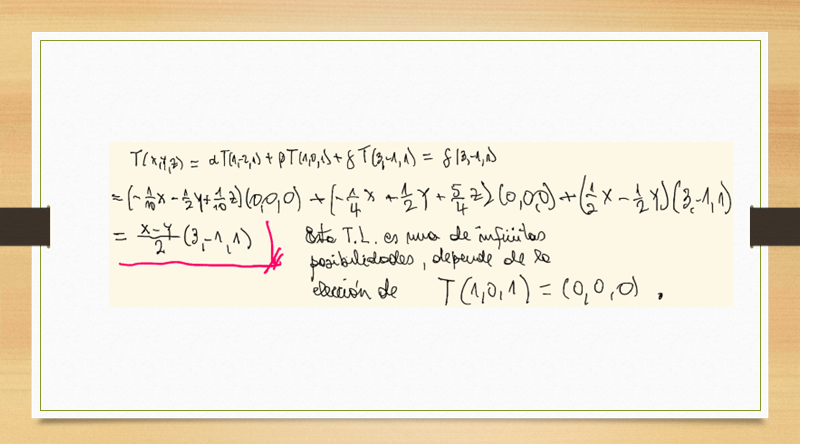 T(x,y,z) = αT(1,-2,1) + βT(1,0,1) + γT(3,-1,1) = γ(3,-1,1)
= (-1/10x - 1/2y + 1/10z)(0,0,0) + (-1/4x + 1/2y + 5/4z)(0,0,0) + (1/2x - 1/2y)(3,-1,1)
= x-y/2 (3,-1,1)
Esta T.L. es una de infinitas
posibilidades, depende de la
elección de T(1,0,1) = (0,0,0).